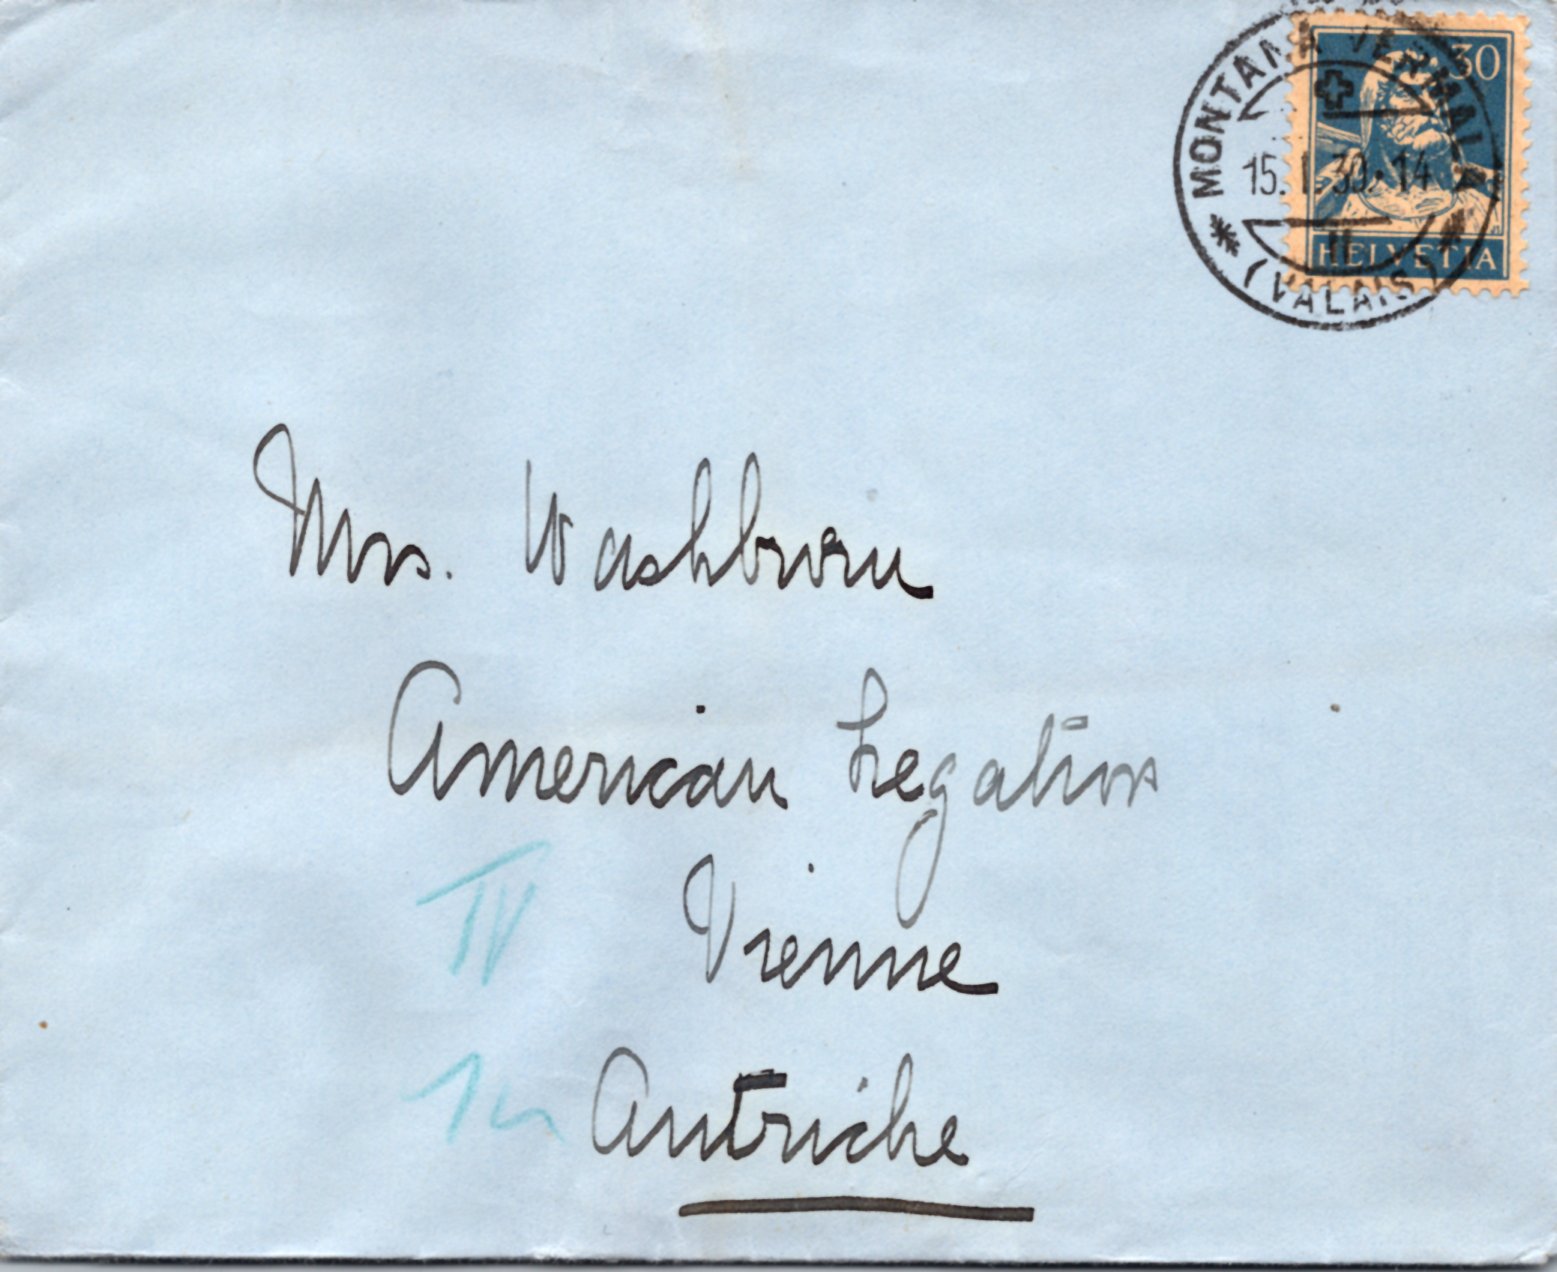 MONTANA-VERMALA
30
15. I. 30. 14
II
HELVETIA
(VALAIS)
Mrs. Washburn
American Legation
IV
Vienne
Autriche